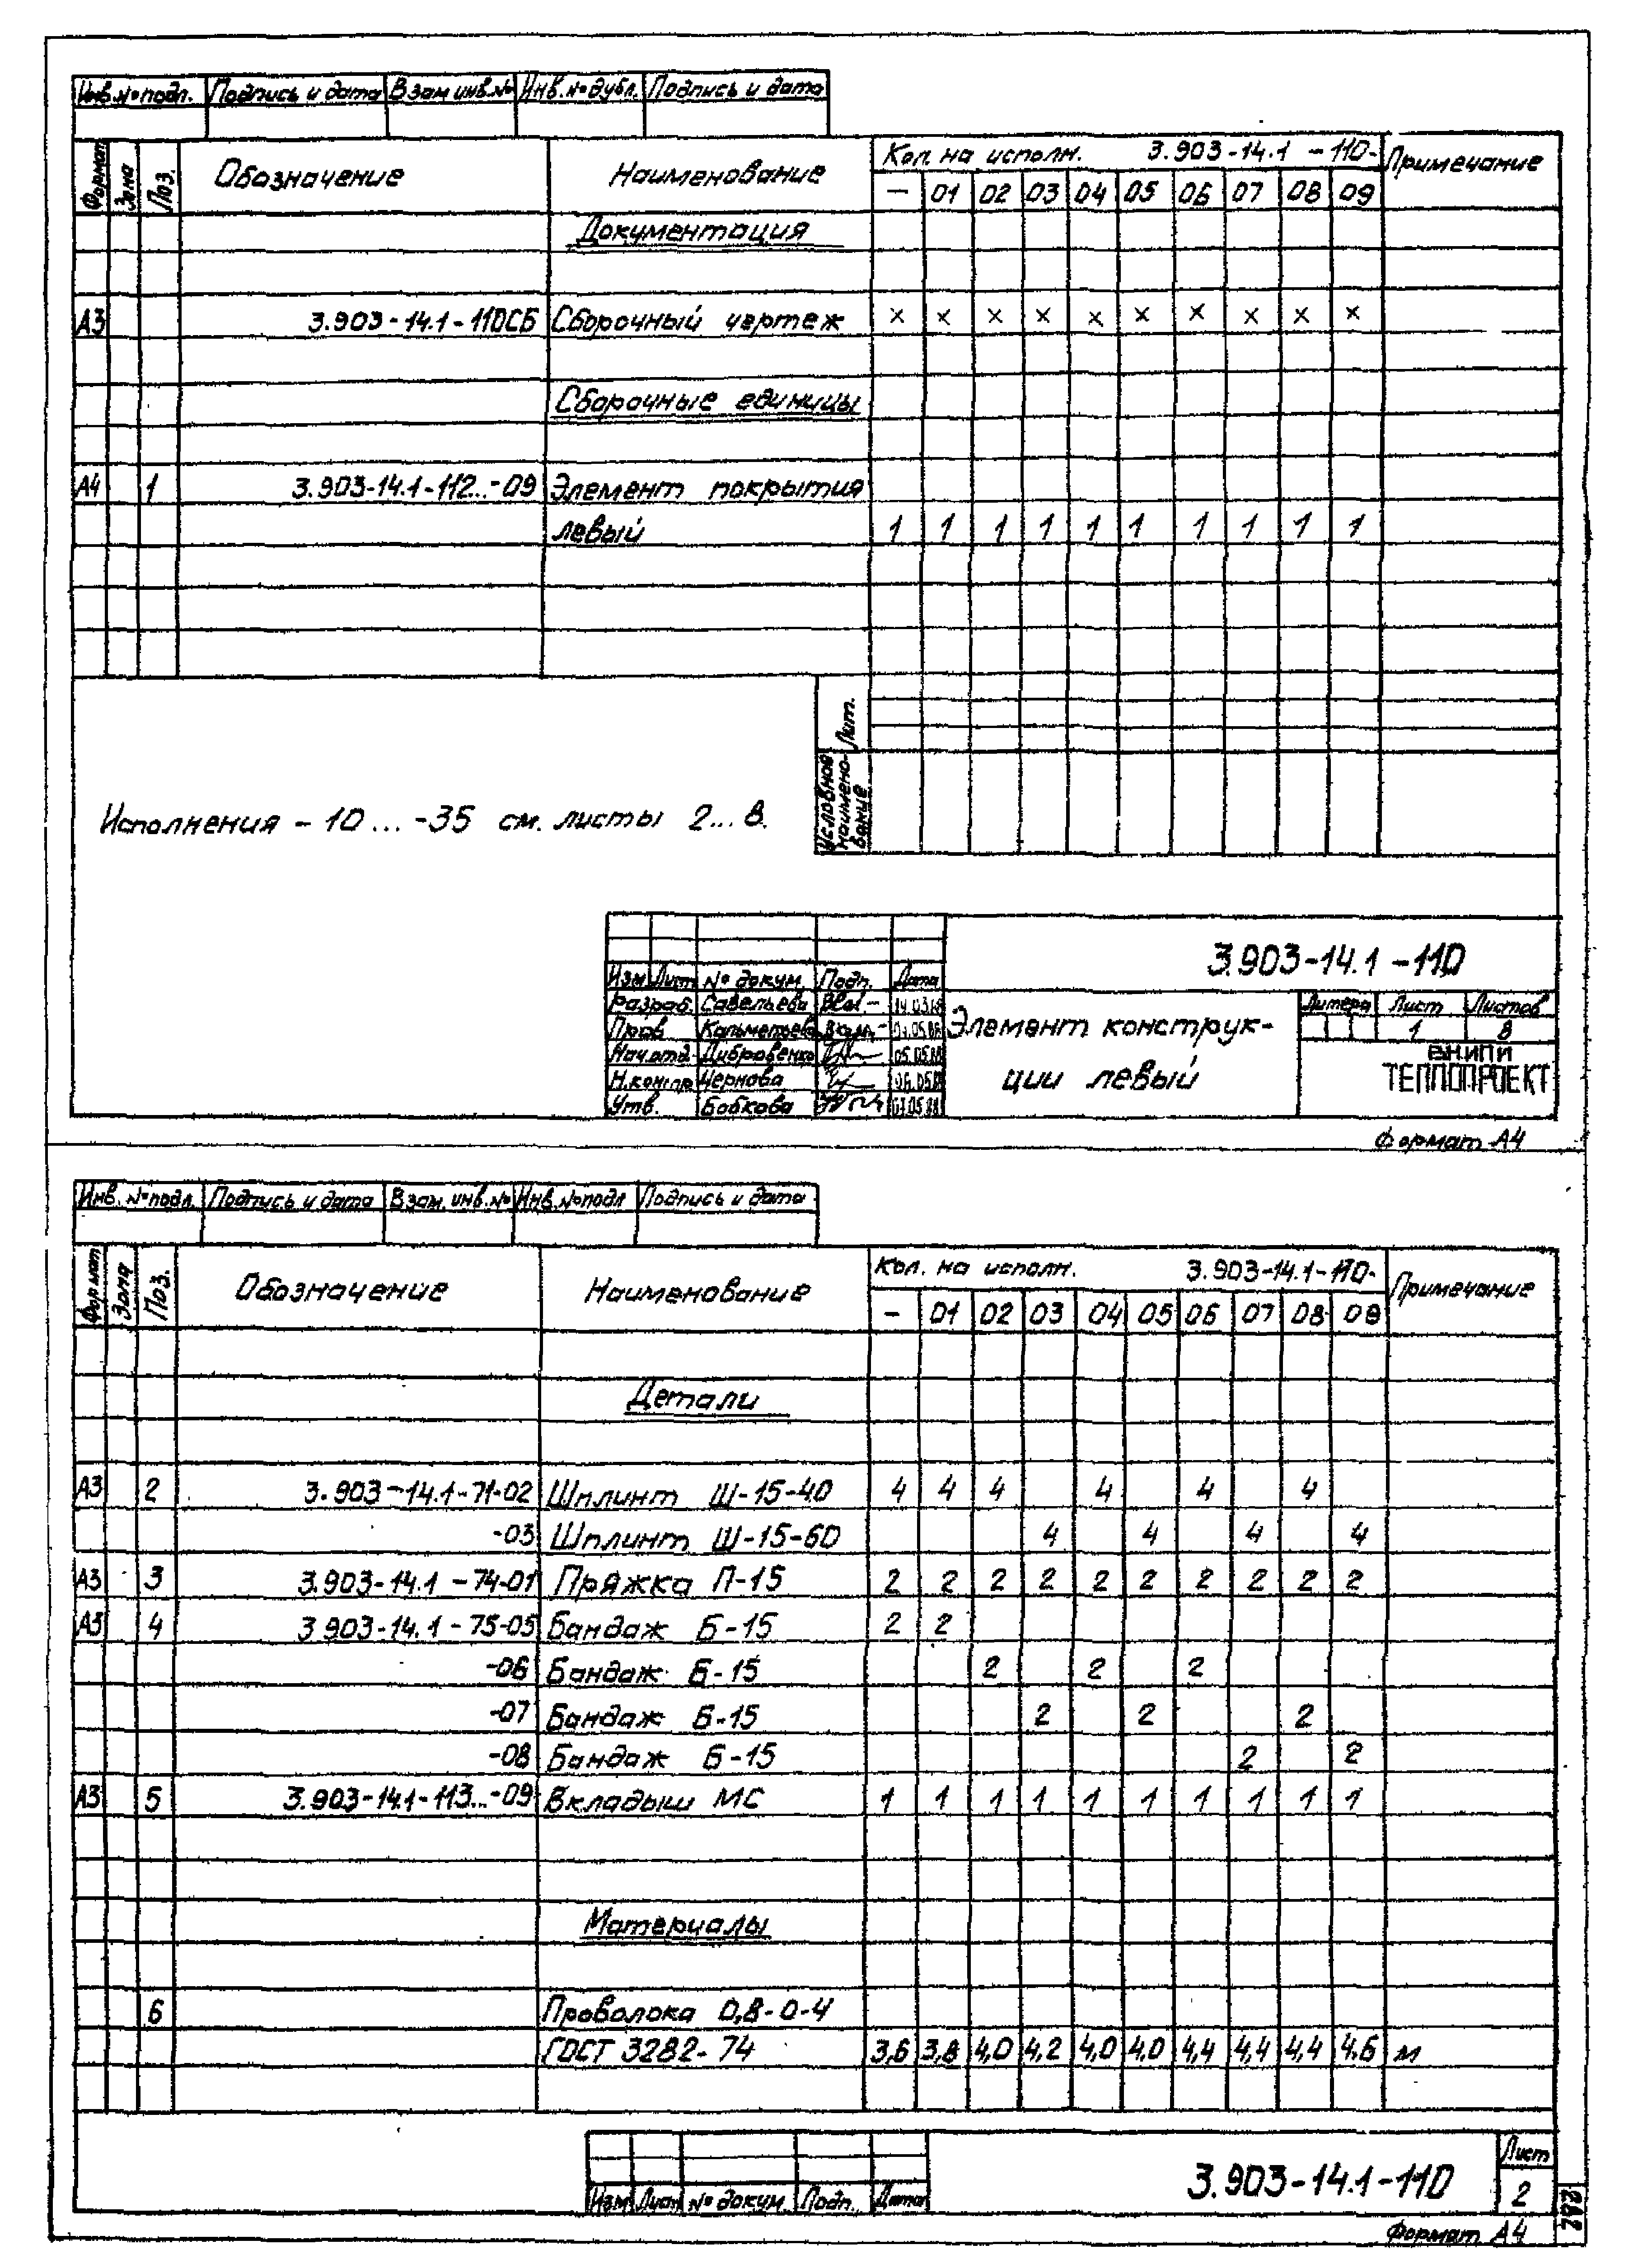 Инв.№подл. Подпись и дата Взам инв.№ Инв.№дубл. Подпись и дата
Формат Зона Поз. Обозначение Наименование Кол. на исполн. 3.903-14.1-110- Примечание
— 01 02 03 04 05 06 07 08 09
Документация
А3 3.903-14.1-110СБ Сборочный чертеж × × × × × × × × × ×
Сборочные единицы
А4 1 3.903-14.1-112...-09 Элемент покрытия
левый 1 1 1 1 1 1 1 1 1 1
Лит.
Условное наимено-вание
Исполнения -10...-35 см. листы 2...8.
3.903-14.1-110
Изм Лист № докум. Подп. Дата
Разраб. Савельева
Пров.
Нач.отд. Дибровенко 05.05.88
Н.контр. Чернова
Утв. Бобкова
Элемент конструк-
ции левый
Литера Лист Листов
1 8
ВНИПИ
ТЕПЛОПРОЕКТ
Формат А4
Инв. №подл. Подпись и дата Взам. инв.№ Инв.№подл Подпись и дата
Формат Зона Поз. Обозначение Наименование Кол. на исполн. 3.903-14.1-110- Примечание
— 01 02 03 04 05 06 07 08 09
Детали
А3 2 3.903-14.1-71-02 Шплинт Ш-15-40 4 4 4 4 4 4
-03 Шплинт Ш-15-60 4 4 4 4
А3 3 3.903-14.1-74-01 Пряжка П-15 2 2 2 2 2 2 2 2 2 2
А3 4 3.903-14.1-75-05 Бандаж Б-15 2 2
-06 Бандаж Б-15 2 2 2
-07 Бандаж Б-15 2 2 2
-08 Бандаж Б-15 2 2
А3 5 3.903-14.1-113...-09 Вкладыш МС 1 1 1 1 1 1 1 1 1 1
Материалы
6 Проволока 0,8-0-4
ГОСТ 3282-74 3,6 3,8 4,0 4,2 4,0 4.0 4,4 4,4 4,4 4.6 м
3.903-14.1-110
Лист
2
Изм Лист № докум. Подп. Дата
Формат А4